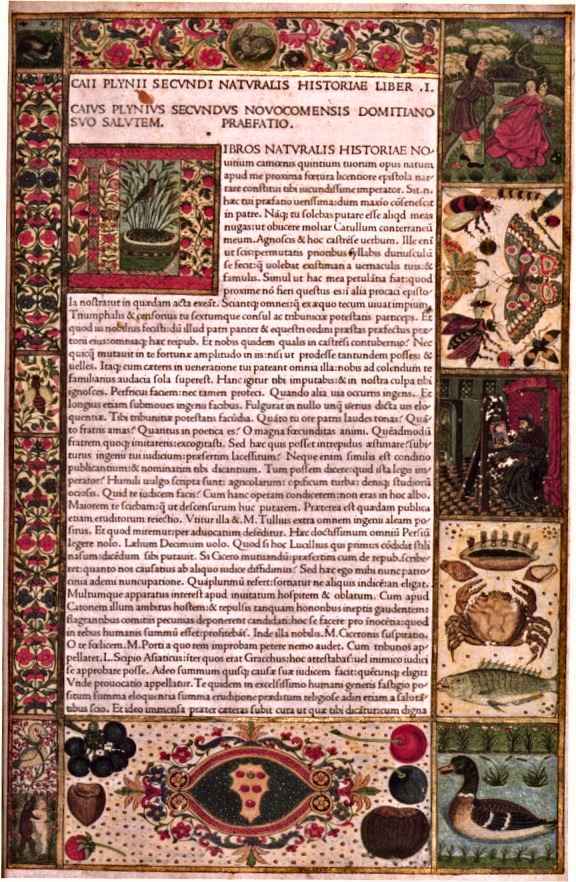 CAII PLYNII SECVNDI NATVRALIS HISTORIAE LIBER .I.
CAIVS PLYNIVS SECVNDVS NOVOCOMENSIS DOMITIANO
SVO SALVTEM. PRAEFATIO.
IBROS NATVRALIS HISTORIAE NO
uitium camœnis quintium tuorum opus natum
apud me proxima fœtura licentiore epistola nar
rare constitui tibi iucundissime imperator. Sit.n.
hæc tui præfatio uerissima:dum maxio cōsenescit
in patre. Nāq; tu solebas putare esse aliqd meas
nugas:ut obiicere moliar Catullum conterraneū
meum. Agnoscis & hoc castrēse uerbum. Ille enī
ut scis:permutatis prioribus syllabis
se fecit:q̄ uolebat existimari a uernaculis tuis:&
famulis. Simul ut hac mea petulātia fiat:quod
proxime nō fieri questus es:ī alia procaci episto-
la nostra:ut in quædam acta exeāt. Sciantq; omnes:q̄ ex æquo tecum uiuat impiuȝ
Triumphalis & censorius tu sextumque consul ac tribuniciæ potestatis particeps. Et
quod iis nobilius fecisti:dū illud patri pariter & equestri ordini præstas præfectus præ-
torii eius:omniaq; hæc reipub. Et nobis quidem qualis in castrēsi contubernio? Nec
quicq̄ mutauit in te fortunæ amplitudo in iis:nisi ut prodesse tantundem posses: &
uelles. Itaq; cum cæteris in ueneratione tui pateant omnia illa:nobis ad colendum te
familiarius audacia sola superest. Hanc igitur tibi imputabis:& in nostra culpa tibi
ignosces. Perfricui faciem:nec tamen profeci. Quando alia uia occurris ingens. Et
longius etiam submoues ingenii facibus. Fulgurat in nullo unq̄ uerius dicta uis elo-
quentiæ. Tibi tribunitiæ potestatis facūdia. Quāto tu ore patris laudes tonas? Quā-
to fratris amas? Quantus in poetica es? O magna fœcunditas animi. Quēadmodū
fratrem quoq; imitareris:excogitasti. Sed hæc quis posset intrepidus æstimare? subi-
turus ingenii tui iudicium:præsertim lacessitum? Neque enim similis est conditio
publicantium:& nominatim tibi dicantium. Tum possem dicere:quid ista legis im-
perator? Humili uulgo scripta sunt: agricolarum: opificum turbæ: deniq; studiorū
ociosis. Quid te iudicem facis? Cum hanc operam condicerem:non eras in hoc albo.
Maiorem te sciebam:q̄ ut descensurum huc putarem. Præterea est quædam publica
etiam eruditorum reiectio. Vtitur illa & M. Tullius extra omnem ingenii aleam po-
situs. Et quod miremur:per aduocatum defēditur. Hæc doctissimum omniū Persiū
legere nolo. Lælium Decimum uolo. Quod si hoc Lucilius qui primus cōdidit stili
nasum:dicēdum sibi putauit. Si Cicero mutuandū:præsertim cum de repub.scribe-
ret:quanto nos causatius ab aliquo iudice diffidimus? Sed hæc ego mihi nunc patro-
cinia ademi nuncupatione. Quāplurimū refert:sortiatur ne aliquis iudicē:an eligat.
Multumque apparatus interest apud inuitatum hospitem & oblatum. Cum apud
Catonem illum ambitus hostem:& repulsis tanquam honoribus ineptis gaudentem:
flagrantibus comitiis pecunias deponerent candidati:hoc se facere pro īnocētia:quod
in rebus humanis summū esset:profitebāt. Inde illa nobilis. M. Ciceronis suspiratio.
O te fœlicem. M. Porti a quo rem improbam petere nemo audet. Cum tribunos ap-
pellaret. L. Scipio Asiaticus:īter quos erat Gracchus:hoc attestabat:uel inimico iudici
se approbare posse. Adeo summum quisq; causæ suæ iudicem facit:quēcunq; eligit:
Vnde prouocatio appellatur. Te quidem in excelsissimo humani generis fastigio po-
situm summa eloquentia summa eruditione præditum religiose adiri etiam a saluta-
tibus scio. Et ideo immensa præter cæteras subit cura ut quæ tibi dicāt digna